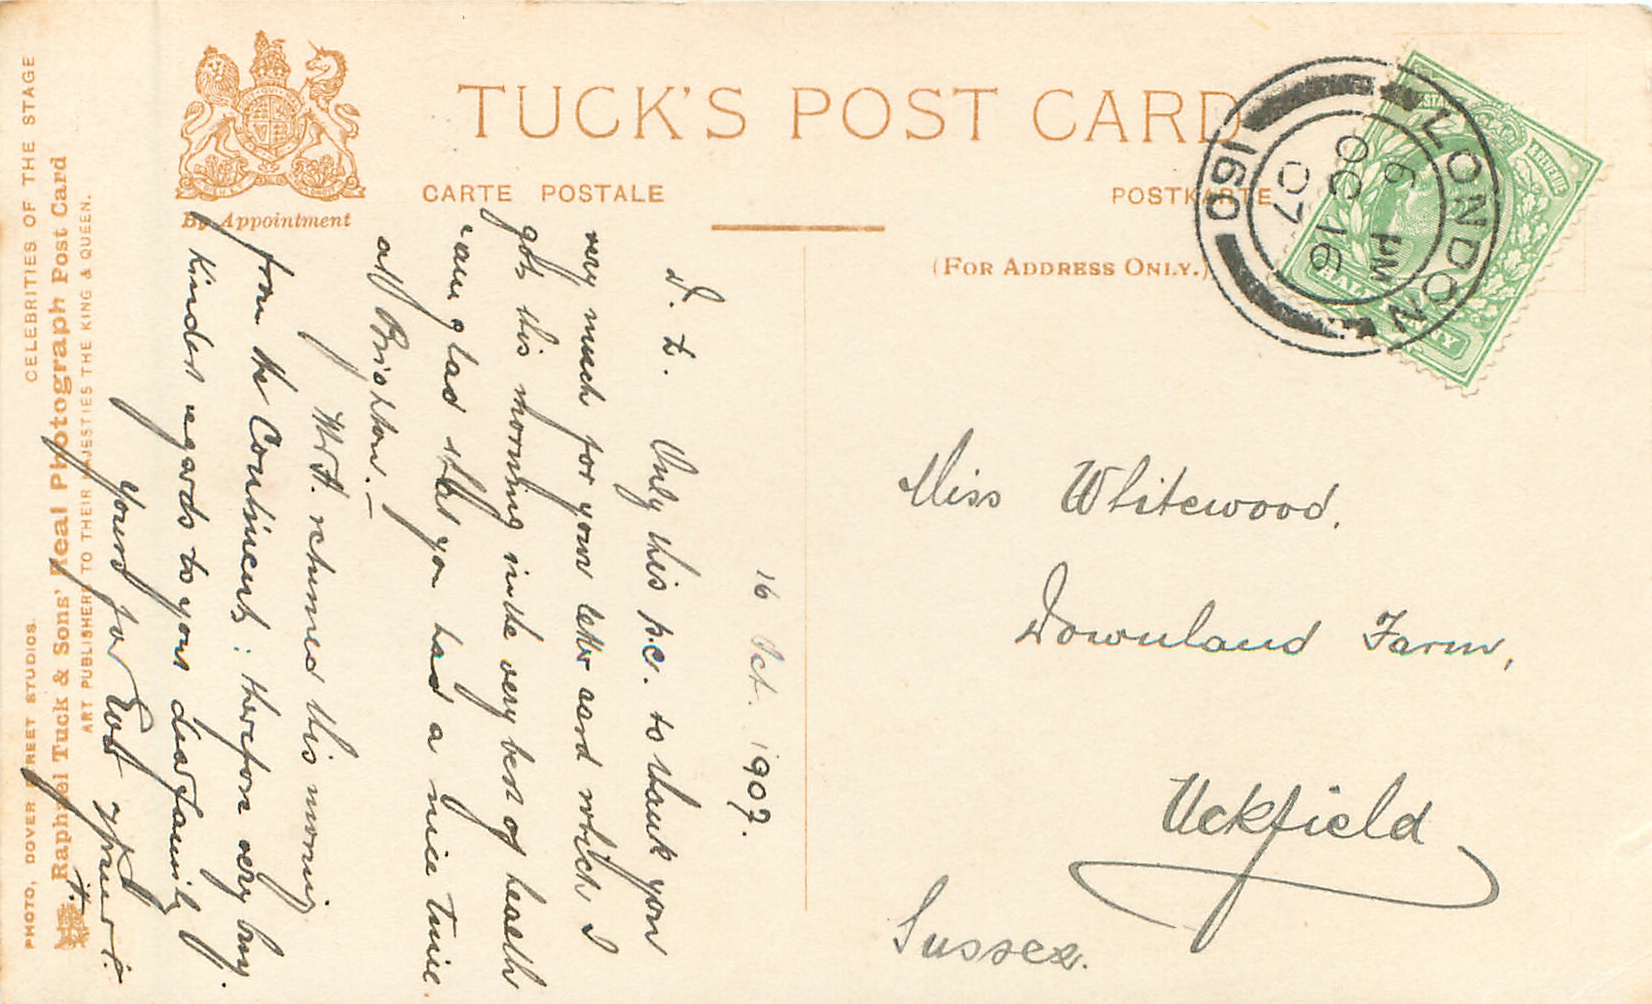 TUCK'S POST CARD
CARTE POSTALE
POSTKARTE
By Appointment
(FOR ADDRESS ONLY.)
LONDON
6 PM
OC 16
07
160
HALFPENNY
CELEBRITIES OF THE STAGE
PHOTO, DOVER STREET STUDIOS.
Raphael Tuck & Sons' Real Photograph Post Card
ART PUBLISHERS TO THEIR MAJESTIES THE KING & QUEEN.
16 Oct. 1907.
D. L. Only this p.c. to thank you
very much for your letter card which I
got this morning in the very best of health
am glad that you had a nice time
at Brighton. —
Mr A. returned this morning
from the Continent; therefore very busy.
Kindest regards to your dear family
yours for
Miss Whitewood.
Downland Farm,
Uckfield
Sussex.